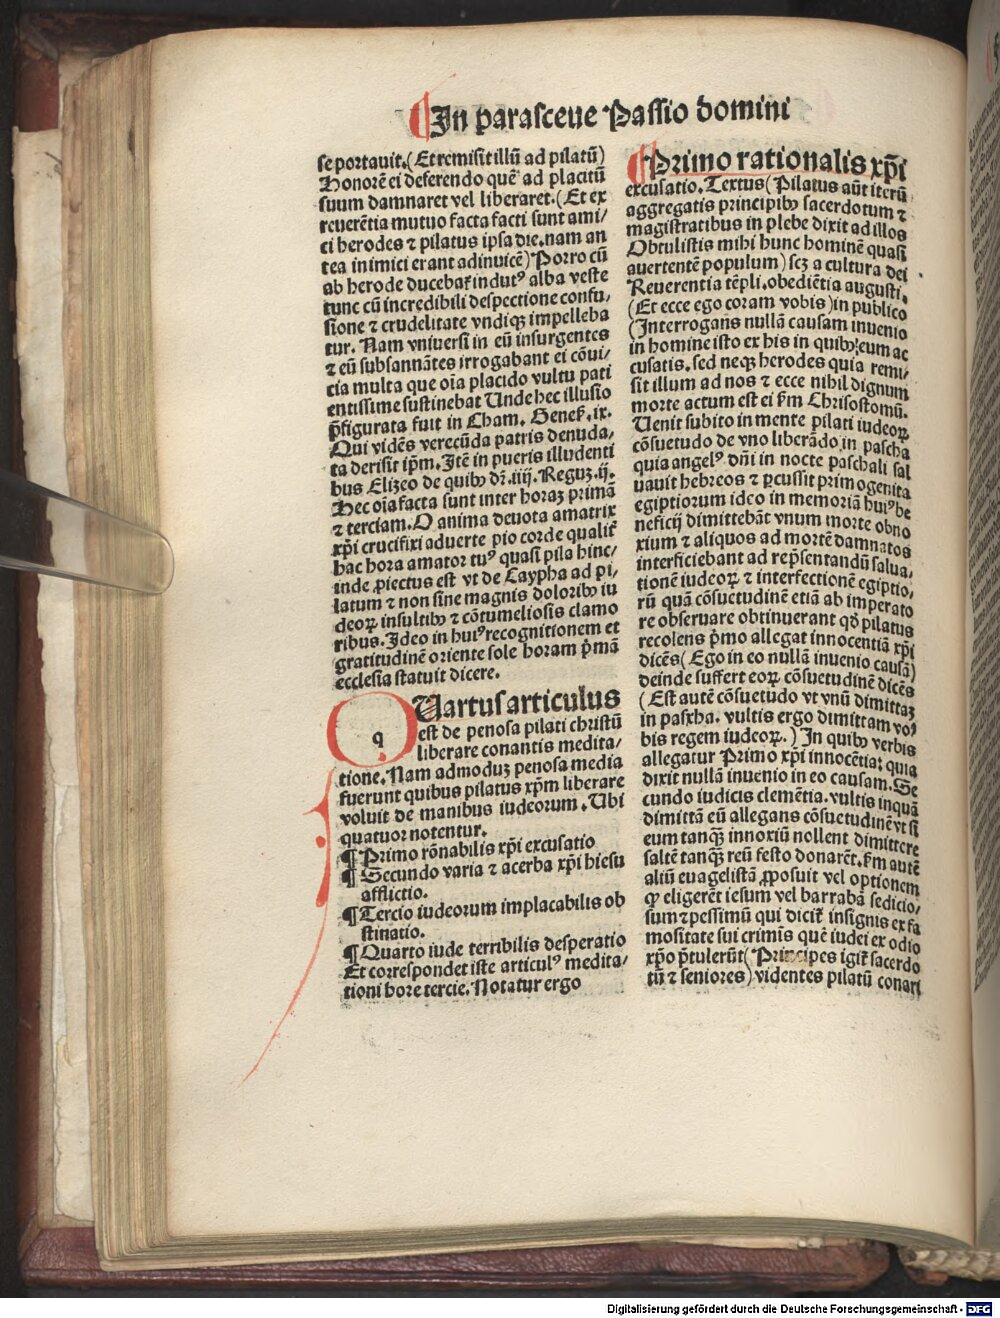 In parasceue Passio domini
se portauit. (Et remisit illū ad pilatū)
Honorē ei deferendo quē ad placitū
suum damnaret vel liberaret. (Et ex
reuerētia mutuo facta facti sunt ami/
ci herodes ⁊ pilatus ipsa die. nam an
tea inimici erant adinuicē) Porro cū
ab herode ducebaf indutꝰ alba veste
tunc cū incredibili despectione confu/
sione ⁊ crudelitate vndiqꝫ impelleba
tur. Nam vniuersi in eū insurgentes
⁊ eū subsannātes irrogabant ei cōui/
cia multa que oīa placido vultu pati
entissime sustinebat Unde hec illusio
p̄figurata fuit in Cham. Genes. ix.
Qui vidēs verecūda patris denuda/
ta derisit ip̄m. Itē in pueris illudenti
bus Elizeo de quibꝰ dr̄. iiij. Reguꝫ. ij.
Hec oīa facta sunt inter horaꝫ primā
⁊ terciam. O anima deuota amatrix
xp̄i crucifixi aduerte pio corde qualit̄
hac hora amator tuꝰ quasi pila hinc/
inde ꝓiectus est vt de Caypha ad pi/
latum ⁊ non sine magnis doloribꝰ iu
deoꝝ insultibꝰ ⁊ cōtumeliosis clamo
ribus. Ideo in huiꝰ recognitionem et
gratitudinē oriente sole horam p̄mā
ecclesia statuit dicere.
QUartus articulus
q
est de penosa pilati christū
liberare conantis medita/
tione. Nam admoduꝫ penosa media
fuerunt quibus pilatus xp̄m liberare
voluit de manibus iudeorum. Ubi
quatuor notentur.
¶ Primo rōnabilis xp̄i excusatio
¶ Secundo varia ⁊ acerba xp̄i hiesu
afflictio.
¶ Tercio iudeorum implacabilis ob
stinatio.
¶ Quarto iude terribilis desperatio
Et correspondet iste articulꝰ medita/
tioni hore tercie. Notatur ergo
Primo rationalis xp̄i
excusatio. Textus (Pilatus aūt iterū
aggregatis principibꝰ sacerdotum ⁊
magistratibus in plebe dixit ad illos
Obtulistis mihi hunc hominē quasi
auertentē populum) scꝫ a cultura dei
Reuerentia tēpli. obediētia augusti.
(Et ecce ego coram vobis) in publico
(Interrogans nullā causam inuenio
in homine isto ex his in quibꝰ eum ac
cusatis. sed neqꝫ herodes quia remi/
sit illum ad nos ⁊ ecce nihil dignum
morte actum est ei k̄m Chrisostomū.
Uenit subito in mente pilati iudeoꝝ
cōsuetudo de vno liberādo in pascha
quia angelꝰ dn̄i in nocte paschali sal
uauit hebreos ⁊ ꝑcussit primogenita
egiptiorum ideo in memoriā huiꝰ be
neficij dimittebāt vnum morte obno
xium ⁊ aliquos ad mortē damnatos
interficiebant ad rep̄sentandū salua/
tionē iudeoꝝ ⁊ interfectionē egiptio/
rū quā cōsuetudinē etiā ab imperato
re obseruare obtinuerant qd̄ pilatus
recolens p̄mo allegat innocentiā xp̄i
dicēs (Ego in eo nullā inuenio causā)
deinde suffert eoꝝ cōsuetudinē dicēs
(Est autē cōsuetudo vt vnū dimittaꝫ
in pasxha. vultis ergo dimittam vo/
bis regem iudeoꝝ.) In quibꝰ verbis
allegatur Primo xp̄i innocētia: quia
dixit nullā inuenio in eo causam. Se
cundo iudicis clemētia. vultis inquā
dimittā eū allegans cōsuetudinē vt si
eum tanqꝫ innoxiū nollent dimittere
saltē tanqꝫ reū festo donarēt. k̄m autē
aliū euagelistā ꝓposuit vel optionem
ꝙ eligerēt iesum vel barrabā sedicio/
sum ⁊ pessimū qui dicit̄ insignis ex fa
mositate sui crimīs quē iudei ex odio
xp̄o p̄tulerūt (Principes igit̄ sacerdo
tū ⁊ seniores) videntes pilatū conari
Digitalisierung gefördert durch die Deutsche Forschungsgemeinschaft - DFG